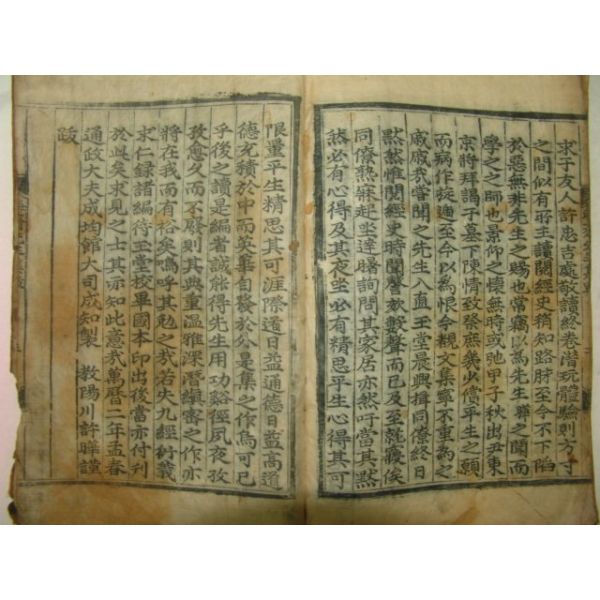 求于友人許忠吉處敬讀終卷潛玩體驗則方寸
之間似有所主讀閱經史稍知路脉至今不下陷
於惡無非先生之賜也常竊以爲先生聯之聞而
學之之師也景仰之懷無時或弛甲子秋出尹東
京將拜謁子墓下陳情致祭庶幾少償平生之願
而病作旋遞至今以爲恨今觀文集寧不重爲之
戚戚我嘗聞之先生入直玉堂晨興揖同僚終日
默然惟閱經史時聞謦欬聲而已及至就寢俟
同僚熟寐起坐達曙詢問其家居亦然吁當其默
然必有心得及其夜坐必有精思平生心得其可
限量平生精思其可涯際道日益通德日益高道
德充積於中而英華自發於外是集之作烏可已
乎後之讀是編者誠能得先生用功谿徑夙夜孜
孜愈久而不廢則其典重溫雅深潛縝密之作亦
將在我而有裕矣嗚呼其勉之哉若夫九經衍義
求仁錄諸編待玉堂校畢國本印出後當亦付刊
於此矣求見之士其亦知此意哉萬曆二年孟春
通政大夫成均館大司成知製 教陽川許曄謹
跋